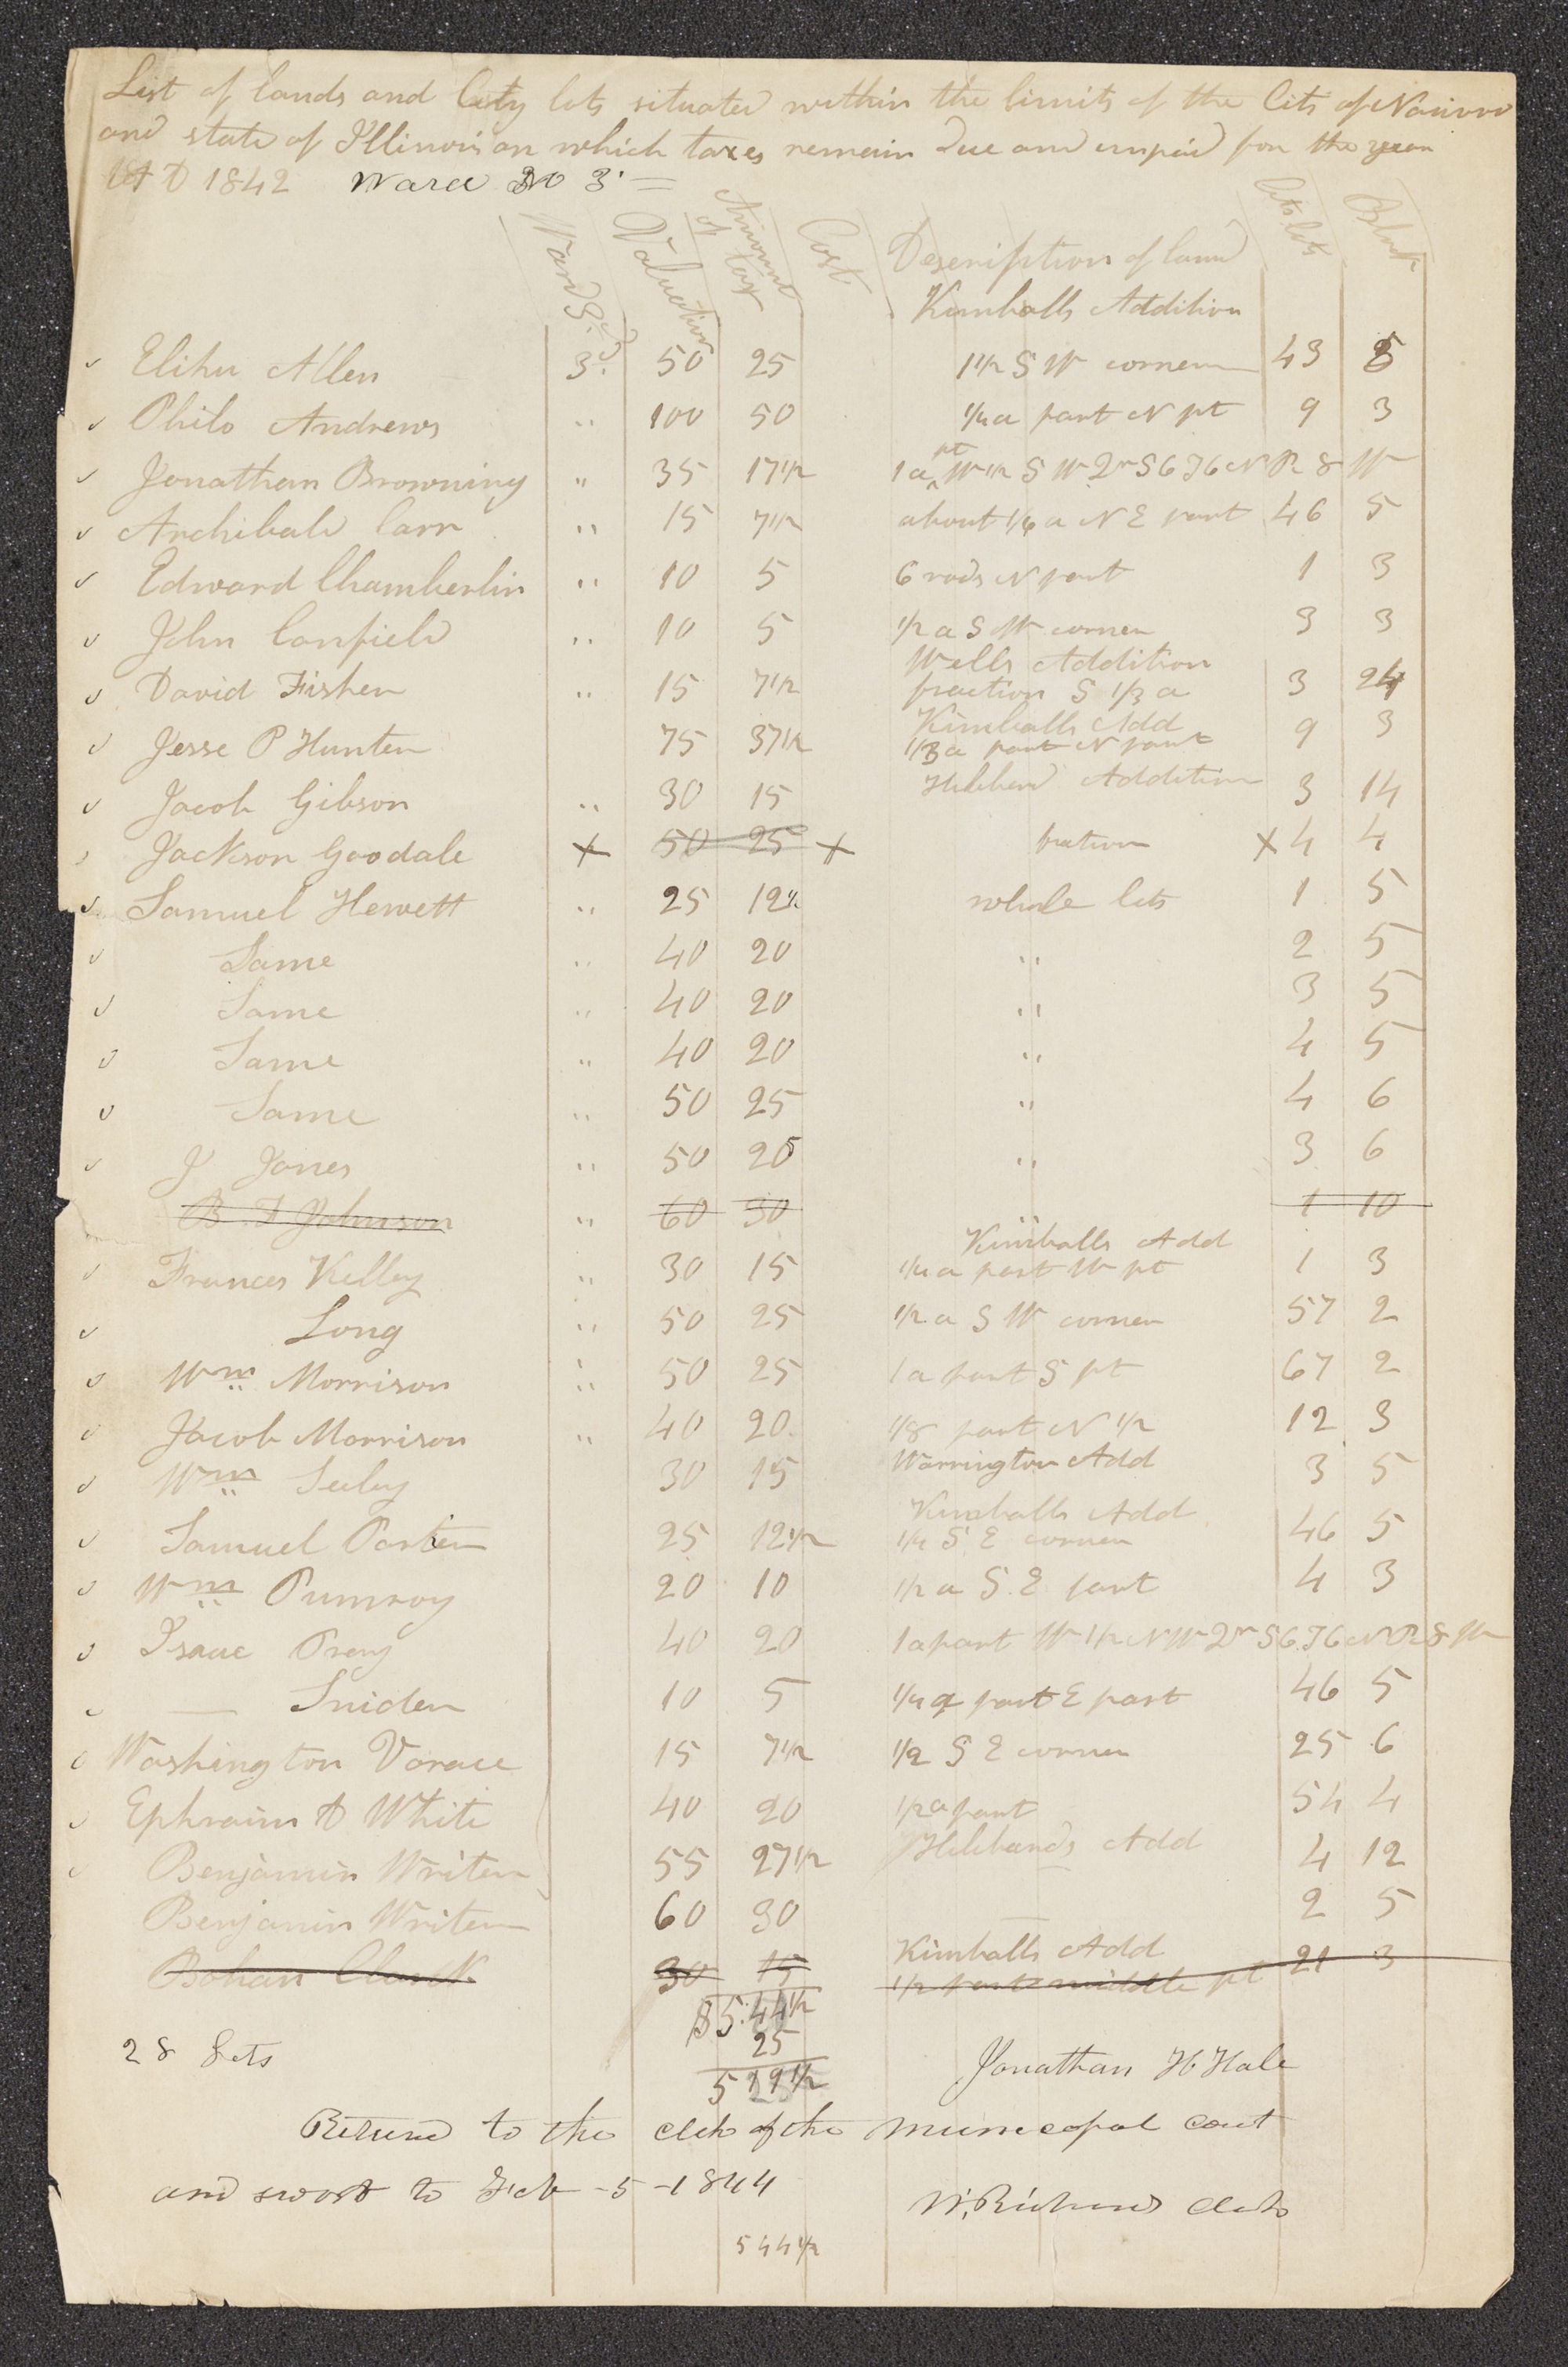 List of lands and City lots situated within the limits of the City of Nauvoo
and state of Illinois on which taxes remain due and unpaid for the year
A D 1842 Ward No 3.
Ward 3. Valuation Amount of tax Cost Description of land City lots Block
Kimballs Addition
Elihu Allen 3. 50 25 1 1/2 S W corner 43 5
Philo Andrews " 100 50 1/4 a part N pt 9 3
Jonathan Browning " 35 17 1/2 1 a pt W 1/2 S W Qr S 6 T 6 N R 8 W
Archibald Carr " 15 7 1/2 about 1/4 a N E part 46 5
Edward Chamberlin " 10 5 6 rods N part 1 3
John Canfield " 10 5 1/2 a S W corner 3 3
Wells Addition
David Fisher " 15 7 1/2 fraction S 1/3 a 3 24
Kimballs Add
Jesse P Hunter 75 37 1/2 1/3 a part N part 9 3
Jacob Gibson " 30 15 Hibberd Addition 3 14
Jackson Goodale x 50 25 x fration x 4 4
Samuel Hewett " 25 12 1/2 whole lots 1 5
Same " 40 20 " 2 5
Same " 40 20 " 3 5
Same " 40 20 " 4 5
Same " 50 25 " 4 6
J Jones " 50 25 " 3 6
B. F Johnson " 60 30 " 1 10
Kimballs Add
Frances Kelley " 30 15 1/4 a part W pt 1 3
Long " 50 25 1/2 a S W corner 57 2
Wm Morrison " 50 25 1 a part S pt 67 2
Jacob Morrison " 40 20 1/8 part N 1/2 12 3
Wm Seeley 30 15 Warrington Add 3 5
Kimballs Add
Samuel Parker 25 12 1/2 1/4 S. E corner 46 5
Wm Pumroy 20 10 1/2 a S. E. part 4 3
Isaac 40 20 1 a part W 1/2 N W Qr S 6 T 6 N R 8 W
— Snider 10 5 1/4 a part E part 46 5
Washington Vorace 15 7 1/2 1/2 S E corner 25 6
Ephraim D White 40 20 1/2 a part 54 4
Benjamin Writer 55 27 1/2 Hibbards Add 4 12
Benjamin Writer 60 30 2 5
Kimballs Add
Bohan Clark 30 15 1/2 part middle pt 21 3
$5.44 1/2
25
28 Lots
5 19 1/2
Jonathan H Hale
Returnd to the Clek of the Municopal Cout
and sworst to Feb -5 -1844
W. Richards Clek
5 44 1/2